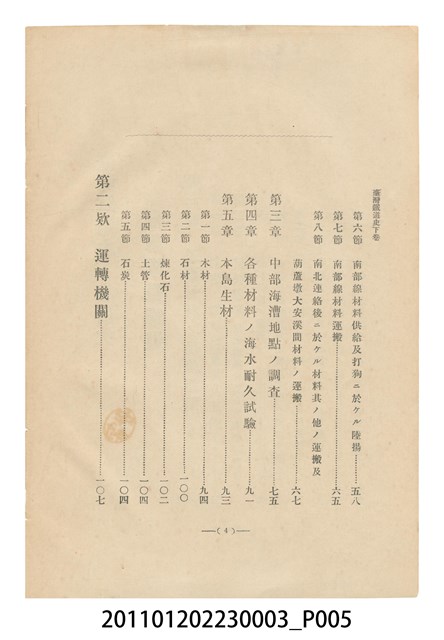 臺灣鐵道史下卷
第六節 南部線材料供給及打狗ニ於ケル陸揚 五八
第七節 南部線材料運搬 六五
第八節 南北連絡後ニ於ケル材料其ノ他ノ運搬及
葫蘆墩大安溪間材料ノ運搬 六七
第三章 中部海漕地點ノ調査 七五
第四章 各種材料ノ海水耐久試驗 九一
第五章 本島生材 九三
第一節 木材 九四
第二節 石材 一〇〇
第三節 煉化石 一〇二
第四節 土管 一〇四
第五節 石炭 一〇四
第二欵 運轉機關 一〇七
(4)
201101202230003_P005